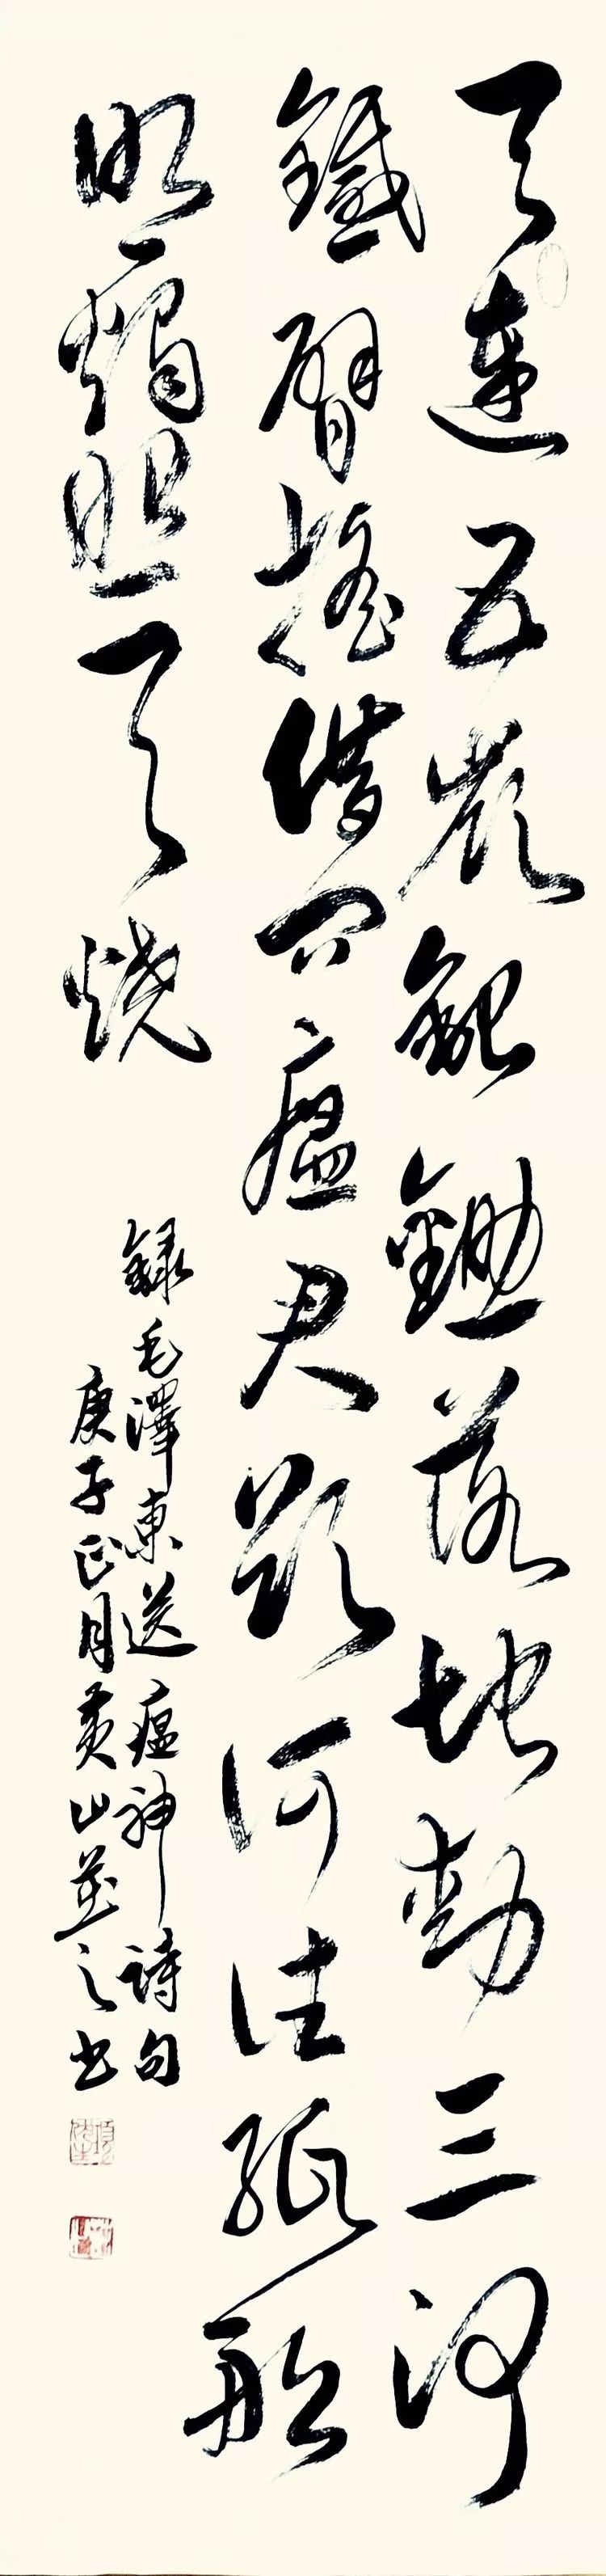 天連五嶺銀鋤落地動三河
鐵臂搖借問瘟君欲何往紙船
明燭照天燒
録毛澤東送瘟神詩句
庚子正月黃山之书